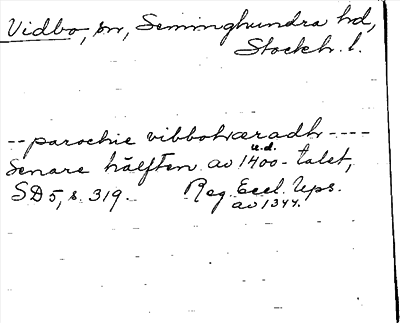 Vidbo, sn, Seminghundra hd,
Stockh. l.
-- parochie vibbohæradh ----
u.d.
Senare hälften av 1400-talet,
SD 5, s. 319. Reg. Eccl. Ups.
av 1344.